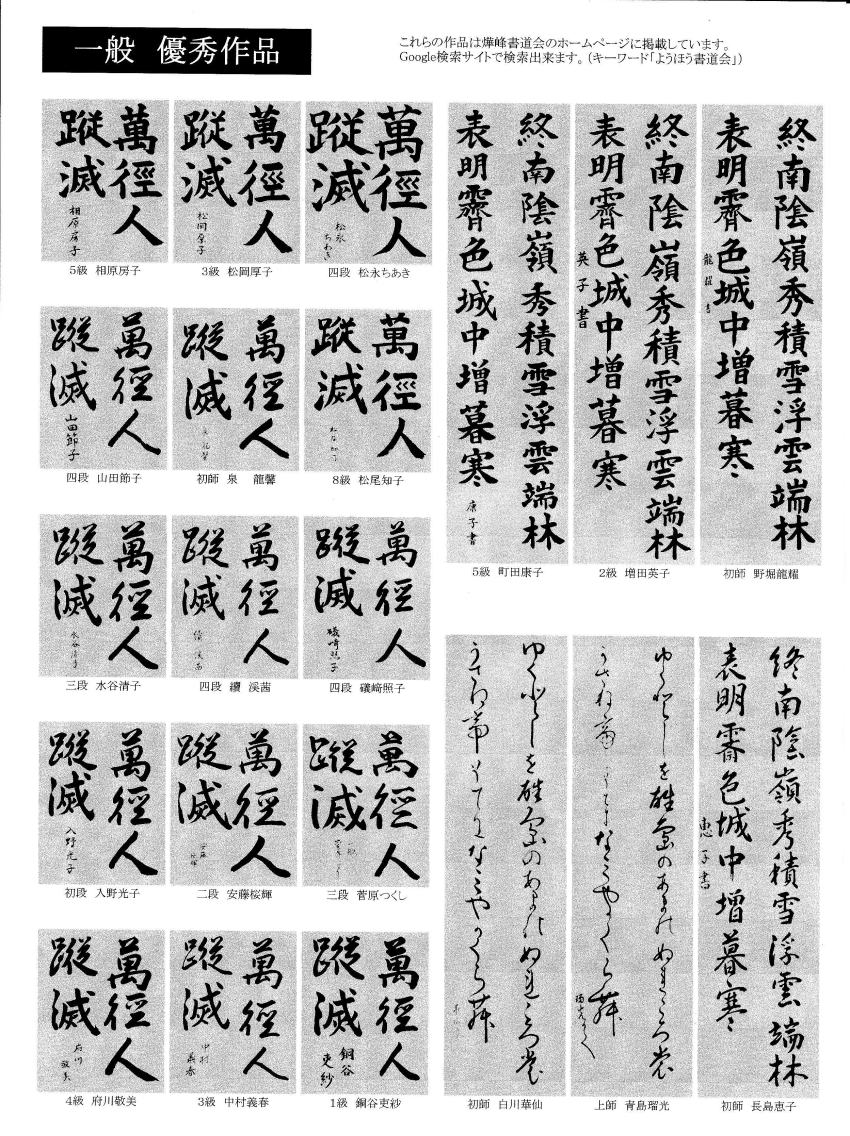 一般 優秀作品
これらの作品は燁峰書道会のホームページに掲載しています。
Google検索サイトで検索出来ます。(キーワード「ようほう書道会」)
萬徑人
蹤滅
松永ちあき
四段 松永ちあき
萬徑人
蹤滅
松岡厚子
3級 松岡厚子
萬徑人
蹤滅
相原房子
5級 相原房子
終南陰嶺秀積雪浮雲端林
表明霽色城中増暮寒
龍耀書
初師 野堀龍耀
終南陰嶺秀積雪浮雲端林
表明霽色城中増暮寒
英子書
2級 増田英子
終南陰嶺秀積雪浮雲端林
表明霽色城中増暮寒
康子書
5級 町田康子
萬徑人
蹤滅
8級 松尾知子
萬徑人
蹤滅
初師 泉 龍馨
萬徑人
蹤滅
山田節子
四段 山田節子
萬徑人
蹤滅
礒﨑照子
四段 礒﨑照子
萬徑人
蹤滅
四段 續 溪茜
萬徑人
蹤滅
水谷清子
三段 水谷清子
萬徑人
蹤滅
三段 菅原つくし
萬徑人
蹤滅
安藤桜輝
二段 安藤桜輝
萬徑人
蹤滅
入野光子
初段 入野光子
萬徑人
蹤滅
銅谷吏紗
1級 銅谷吏紗
萬徑人
蹤滅
中村義春
3級 中村義春
萬徑人
蹤滅
府川敬美
4級 府川敬美
終南陰嶺秀積雪浮雲端林
表明霽色城中増暮寒
恵子書
初師 長島恵子
上師 青島瑠光
初師 白川華仙